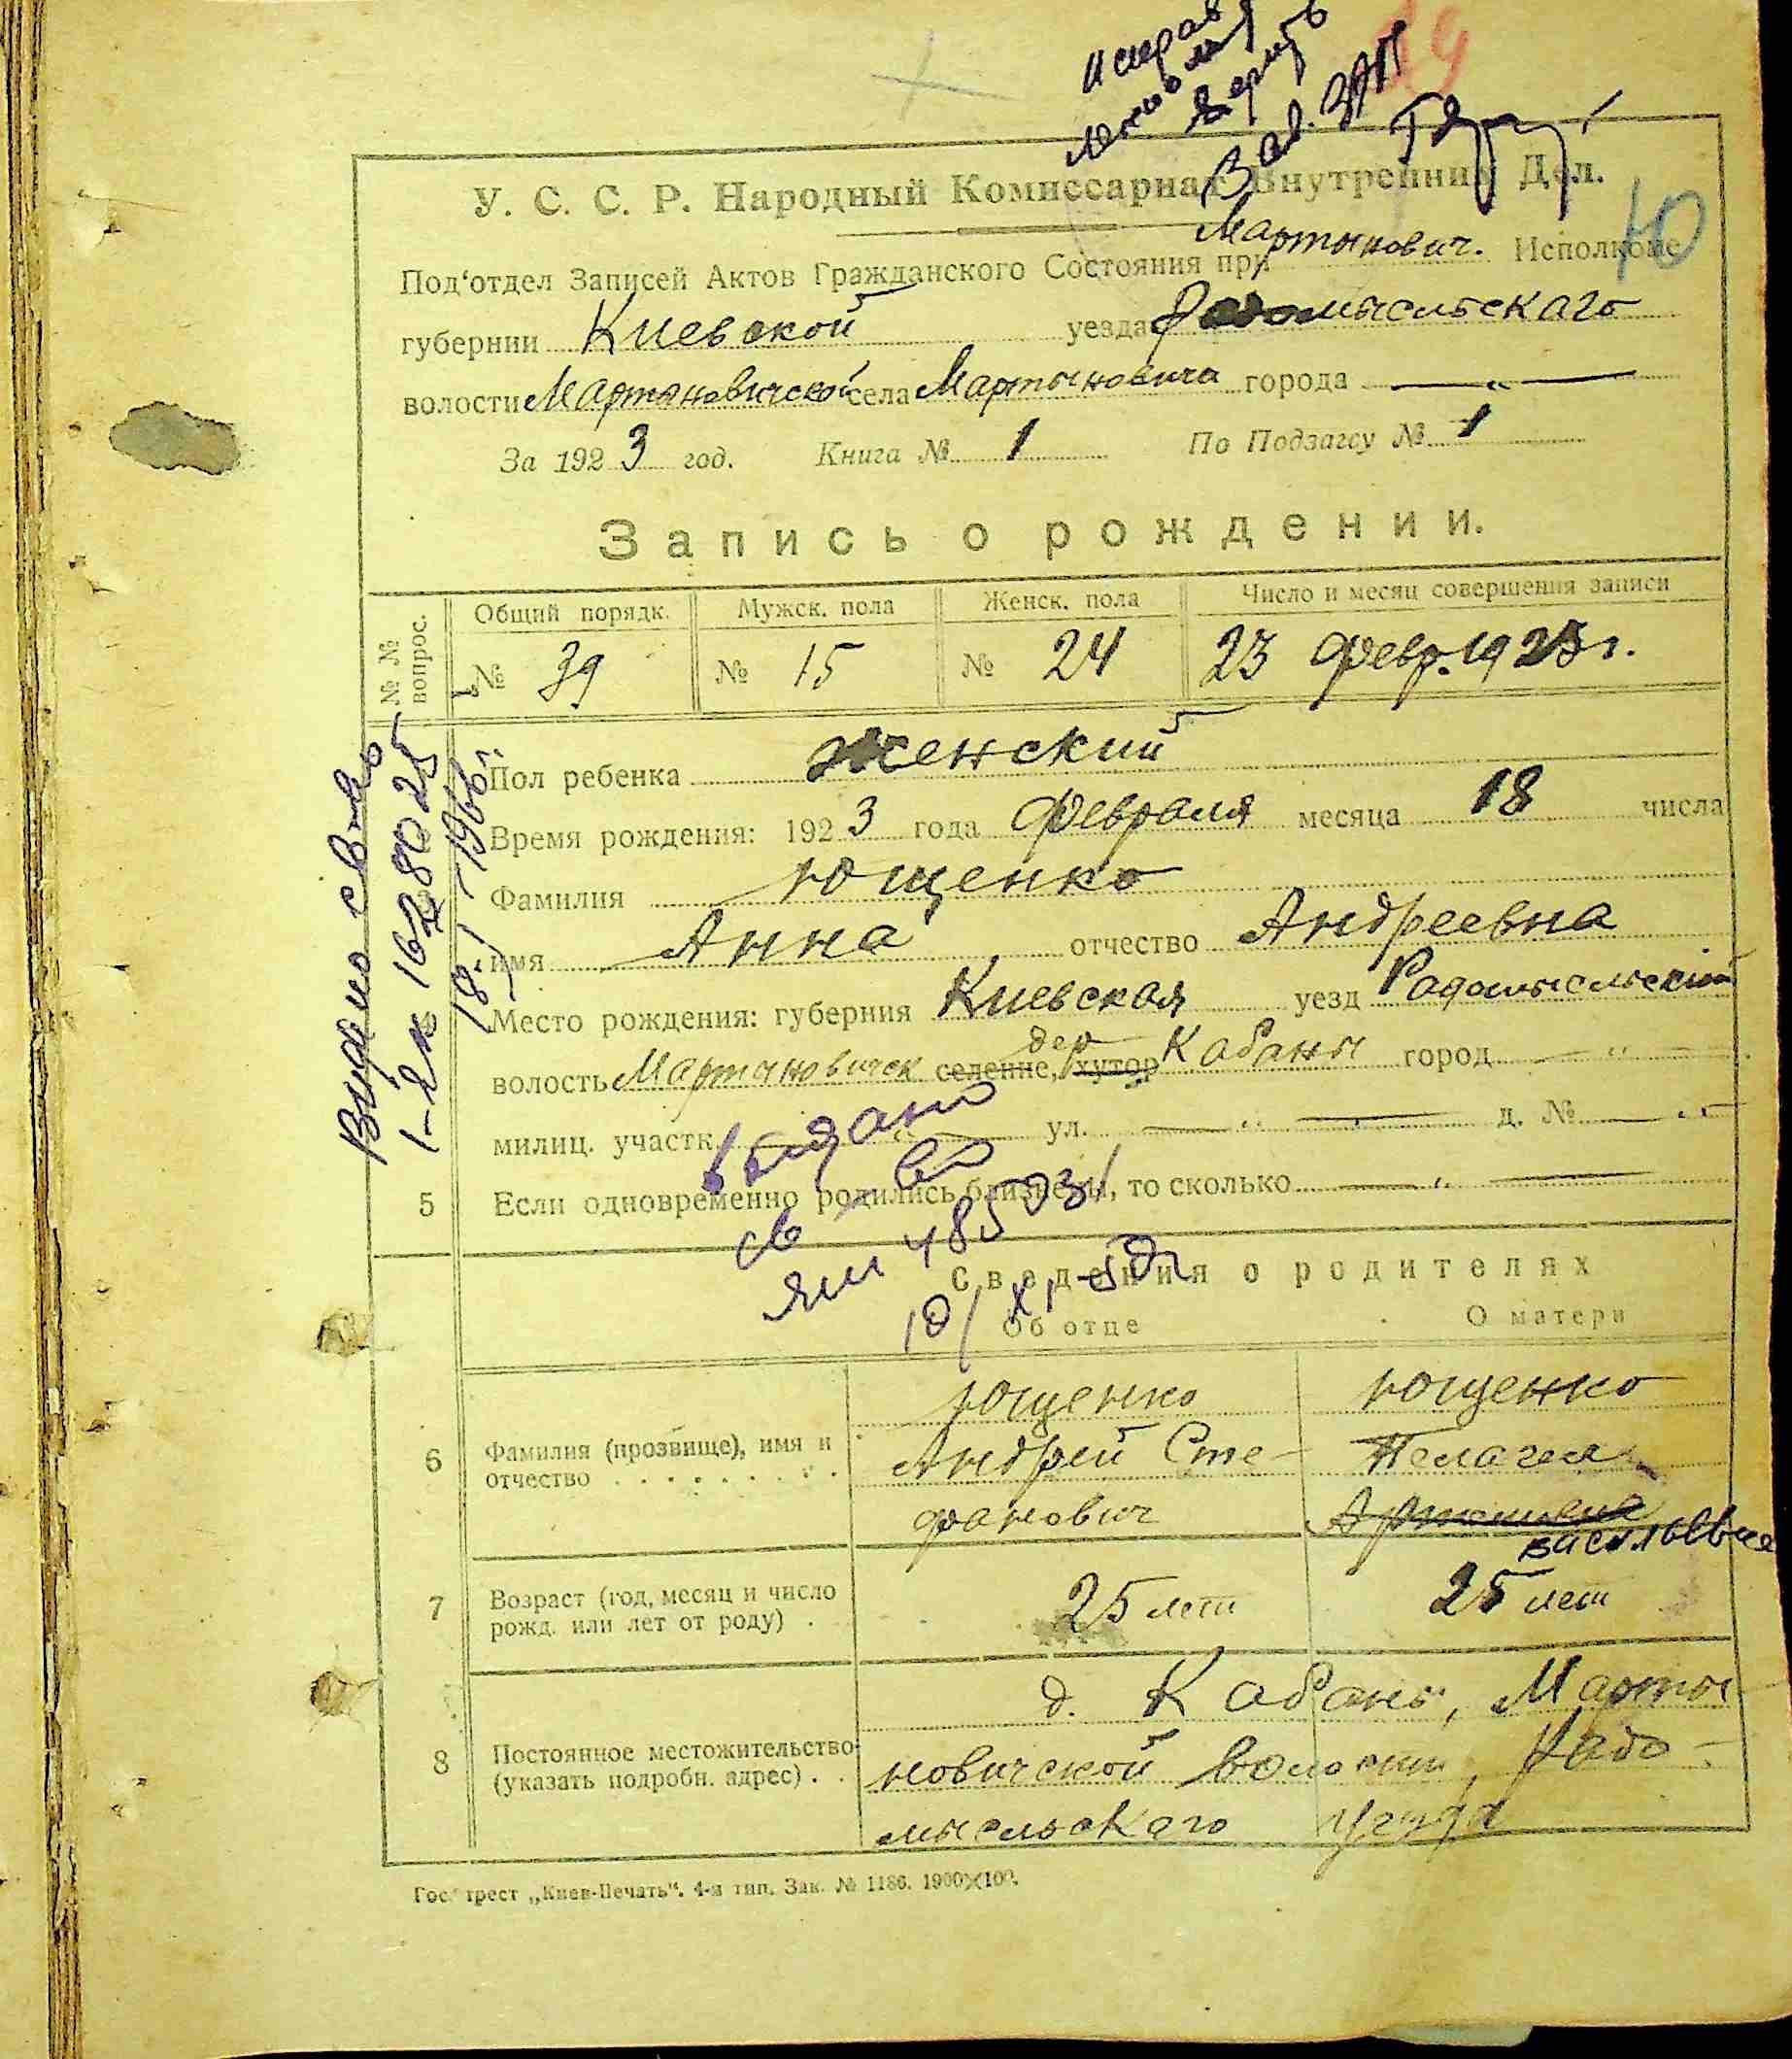 Исправ
верить
Зав. ЗАГС
У. С. С. Р. Народный Комиссариат Внутренних Дел.
Под'отдел Записей Актов Гражданского Состояния при Мартынович. Исполкоме
Ю
губернии Киевской уезда Радомысльскаго
волости Мартыновичской села Мартыновичи города — „ —
За 1923 год. Книга № 1 По Подзагсу № 1
Запись о рождении.
№ № вопрос.
Общий порядк. Мужск. пола Женск. пола Число и месяц совершения записи
№ 39 № 15 № 24 23 февр. 1923 г.
Видано св-во
1-ек 1628025
18/I-1966г.
Пол ребенка Женский
Время рождения: 1923 года февраля месяца 18 числа
Фамилия Ющенко
имя Анна отчество Андреевна
Место рождения: губерния Киевская уезд Радомысльский
дер
волость Мартыновичск селение, хутор Кабаны город — „ —
милиц. участк. — „ — ул. — „ — д. № — „
выдано
5 Если одновременно родились близнецы, то сколько — „ —
св
яш 485031
10/XI-50г
Сведения о родителях
Об отце О матери
6 Фамилия (прозвище), имя и отчество
Ющенко Андрей Сте-
фанович
Ющенко
Пелагея
Васильевна
7 Возраст (год, месяц и число рожд. или лет от роду) . 25 лет 25 лет
8 Постоянное местожительство (указать подробн. адрес) . .
д. Кабаны, Марты-
новичской волости, Радо-
мысльскаго уезда
Гос. трест „Киев-Печать“. 4-я тип. Зак. № 1186. 1900×100.